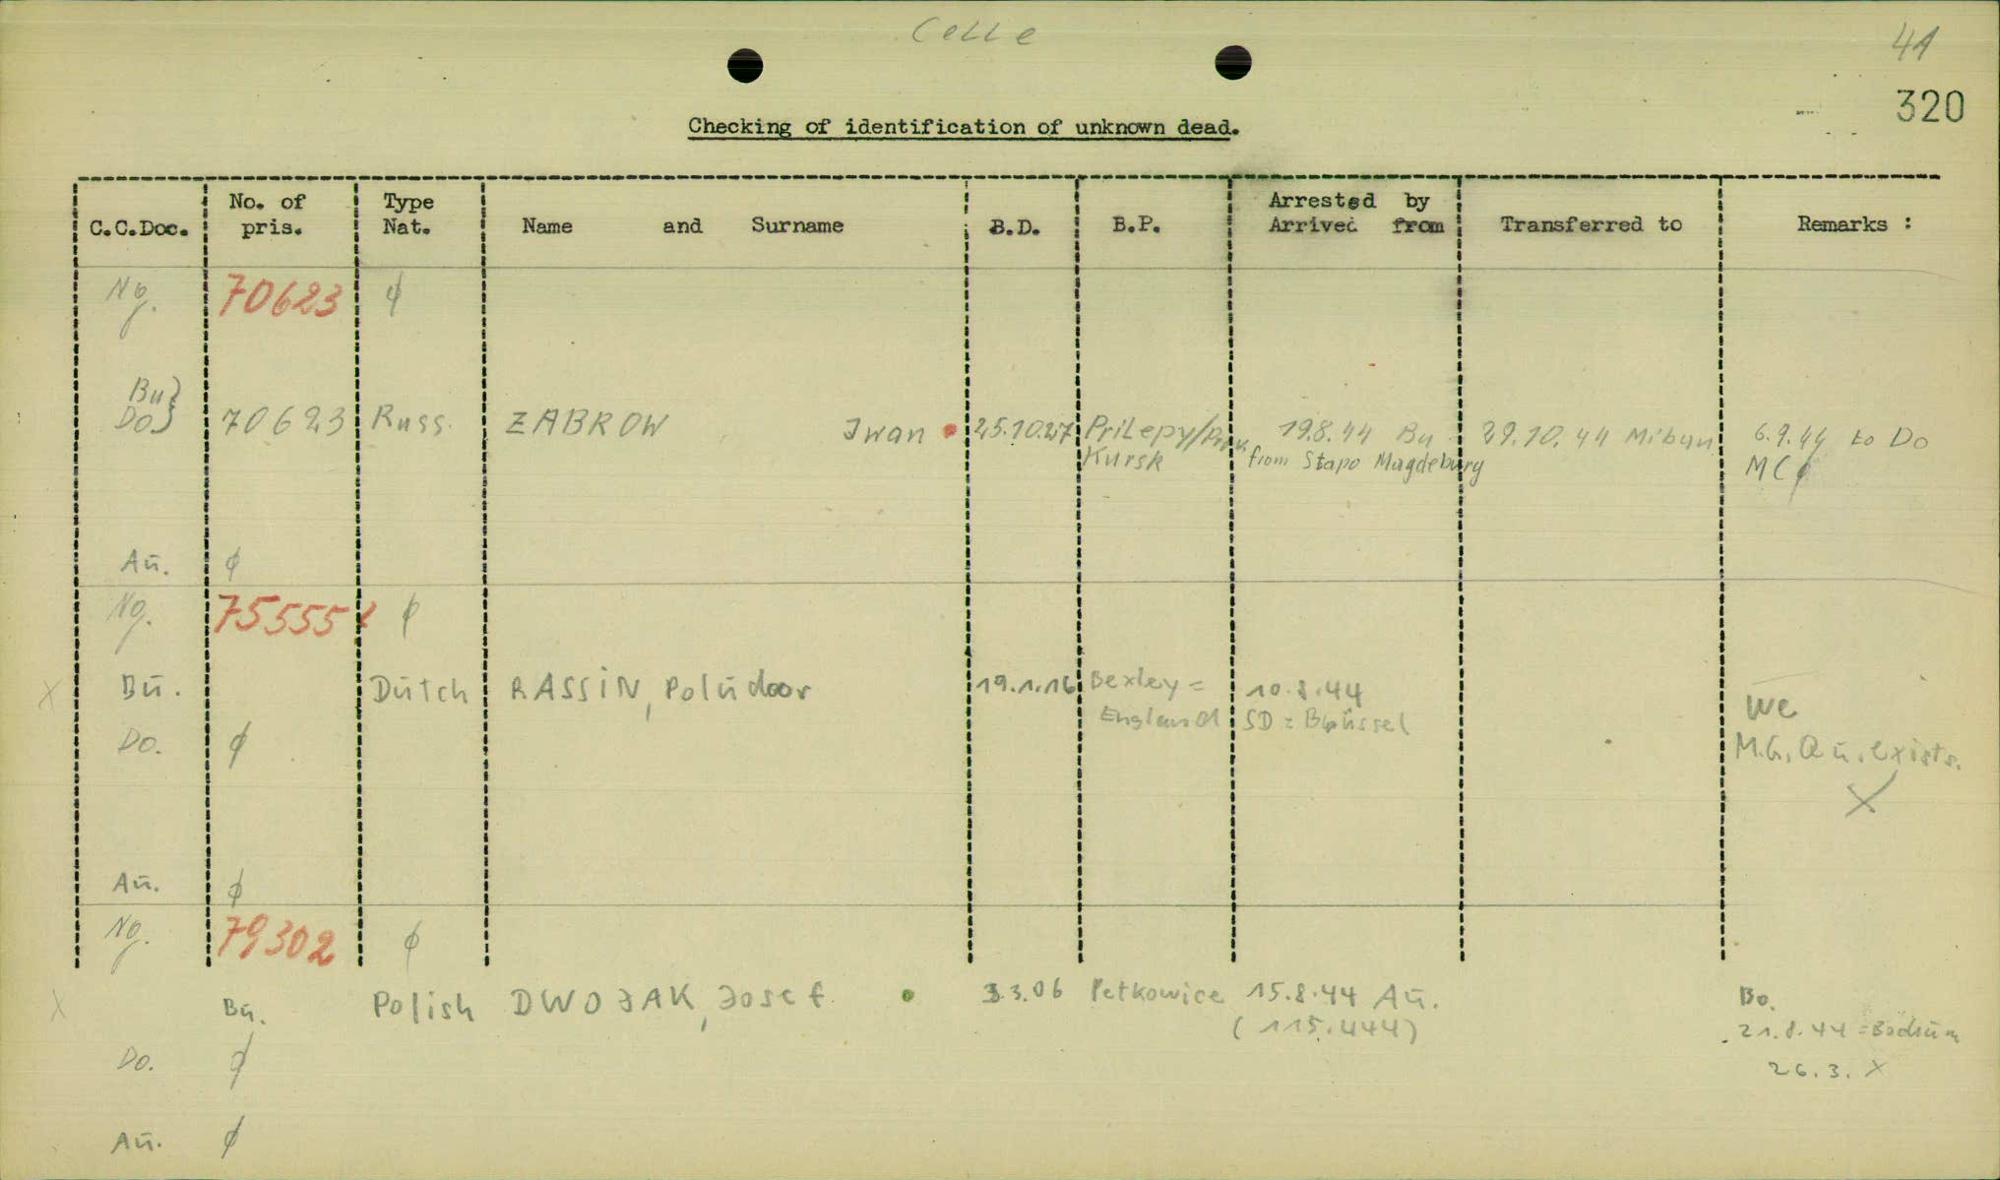 Celle
41
320
Checking of identification of unknown dead.
C.C.Doc. No. of pris. Type Nat. Name and Surname B.D. B.P. Arrested by Arrived from Transferred to Remarks :
Ng. 70623 ϕ
Bu} Do} 70623 Russ. ZABROW Jwan 25.10.27 Prilepy/ 19.8.44 Bu 29.10.44 6.9.44 to Do
Kursk from Stapo Magdeburg MCϕ
Aū. ϕ
Ng. 75555 ϕ
X Bū. Dūtch RASSiN, Polūdoor 19.1.16 Bexley = 10.8.44 We
England SD = Brüssel
Do. ϕ M.G. Qū. exists.
X
Aū. ϕ
Ng. 79302 ϕ
X Bū. Polish DWOJAK, Josef 3.3.06 Petkowice 15.8.44 Aū. Bo.
(115.444) 21.8.44 = Bochūm
Do. ϕ 26.3. X
Aū. ϕ